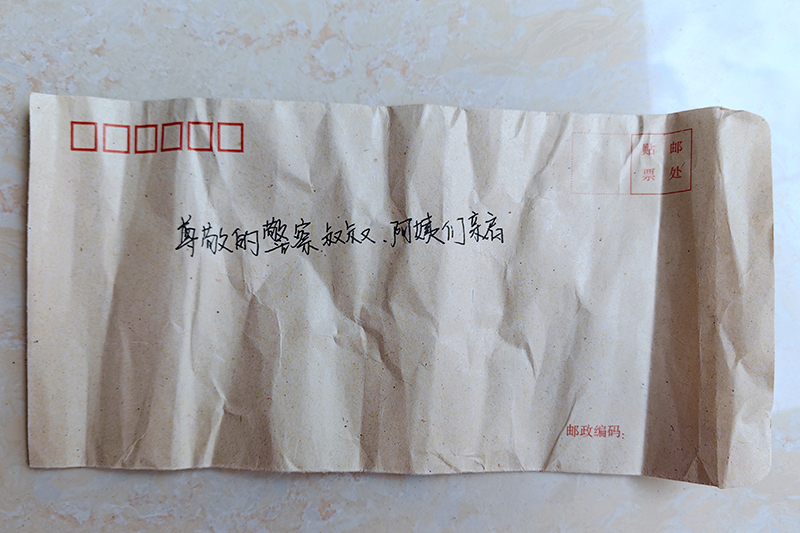 贴 邮
票 处
尊敬的警察叔叔、阿姨们亲启
邮政编码: